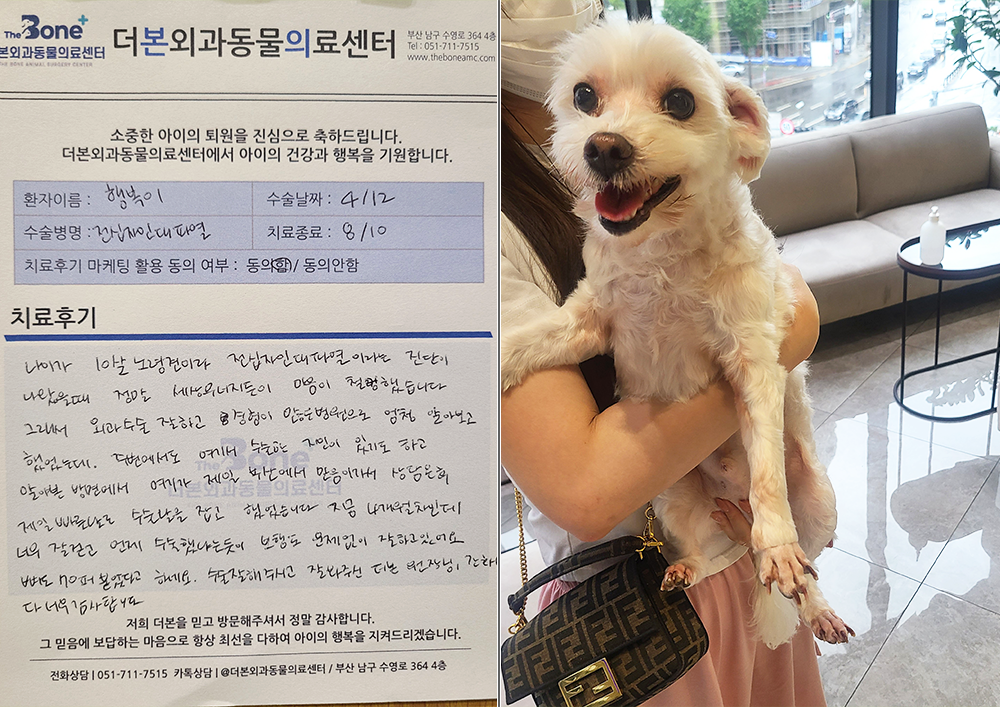 The Bone+
더본외과동물의료센터
THE BONE ANIMAL SURGERY CENTER
더본외과동물의료센터
부산 남구 수영로 364 4층
Tel : 051-711-7515
www.theboneamc.com
소중한 아이의 퇴원을 진심으로 축하드립니다.
더본외과동물의료센터에서 아이의 건강과 행복을 기원합니다.
환자이름 : 행복이
수술날짜 : 4/12
수술병명 : 전십자인대파열
치료종료 : 8/10
치료후기 마케팅 활용 동의 여부 : 동의함 / 동의안함
치료후기
나이가 10살 노령견이라 전십자인대파열이라는 진단이
나왔을때 정말 세상무너지듯이 마음이 철렁했습니다
그래서 외과수술 잘하고 경험이 많은병원으로 엄청 알아보고
했었는데. 주변에서도 여기서 수술한 지인이 있기도 하고
알아본 방면에서 여기가 제일 부산에서 마음이가서 상담은후
제일 빠른날로 수술날을 잡고 했었습니다 지금 4개월차인데
너무 잘걷고 언제 수술했냐는듯이 보행도 문제없이 잘하고있어요
뼈도 70퍼 붙었다고 하세요. 수술잘해주시고 잘봐주신 더본 원장님, 간호사
다 너무감사합니다
The Bone+
더본외과동물의료센터
저희 더본을 믿고 방문해주셔서 정말 감사합니다.
그 믿음에 보답하는 마음으로 항상 최선을 다하여 아이의 행복을 지켜드리겠습니다.
전화상담 | 051-711-7515 카톡상담 | @더본외과동물의료센터 / 부산 남구 수영로 364 4층